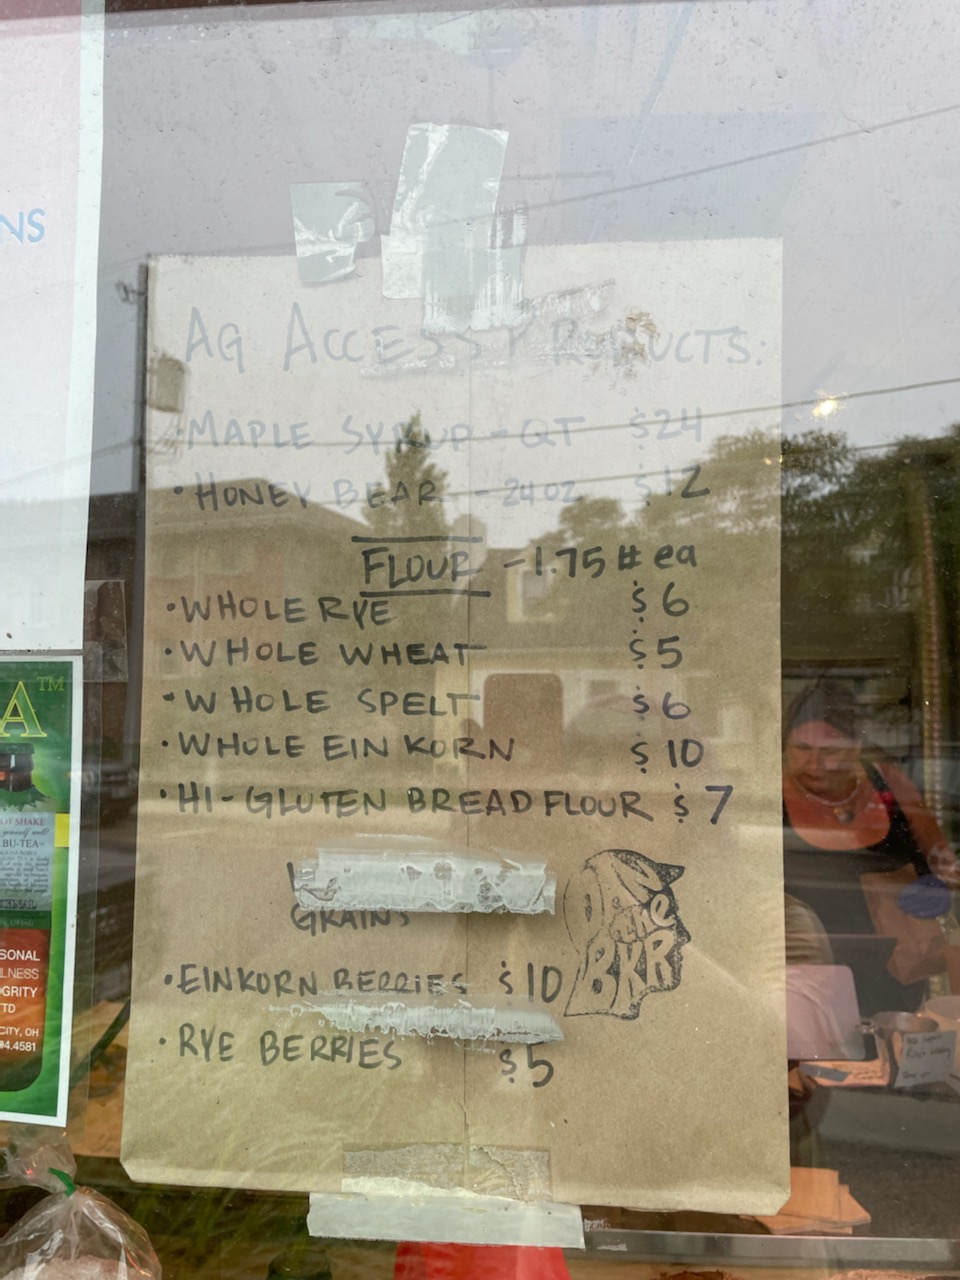 NS
AG ACCESS PRODUCTS:
MAPLE SYRUP - QT $24
• HONEY BEAR - 24 OZ $12
FLOUR - 1.75 # ea
• WHOLE RYE $6
• WHOLE WHEAT $5
• WHOLE SPELT $6
• WHOLE EINKORN $10
• HI-GLUTEN BREAD FLOUR $7
GRAINS
DAN
the
BKR
• EINKORN BERRIES $10
• RYE BERRIES $5
A™
OT SHAKE
BU-TEA
SONAL
LNESS
GRITY
TD
CITY, OH
4.4581